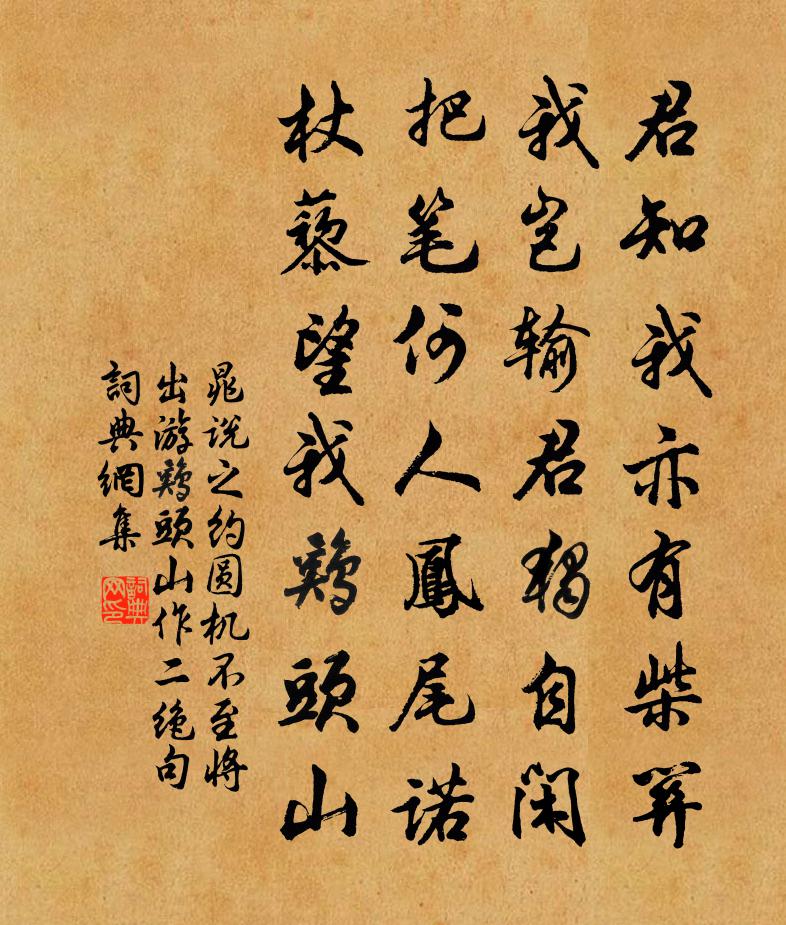 君知我亦有柴関
我岂输君独自闲
把笔何人鳳尾诺
杖藜望我鷄頭山
晁说之约圆机不至将
出游鷄頭山作二绝句
詞典網集
詞典網印